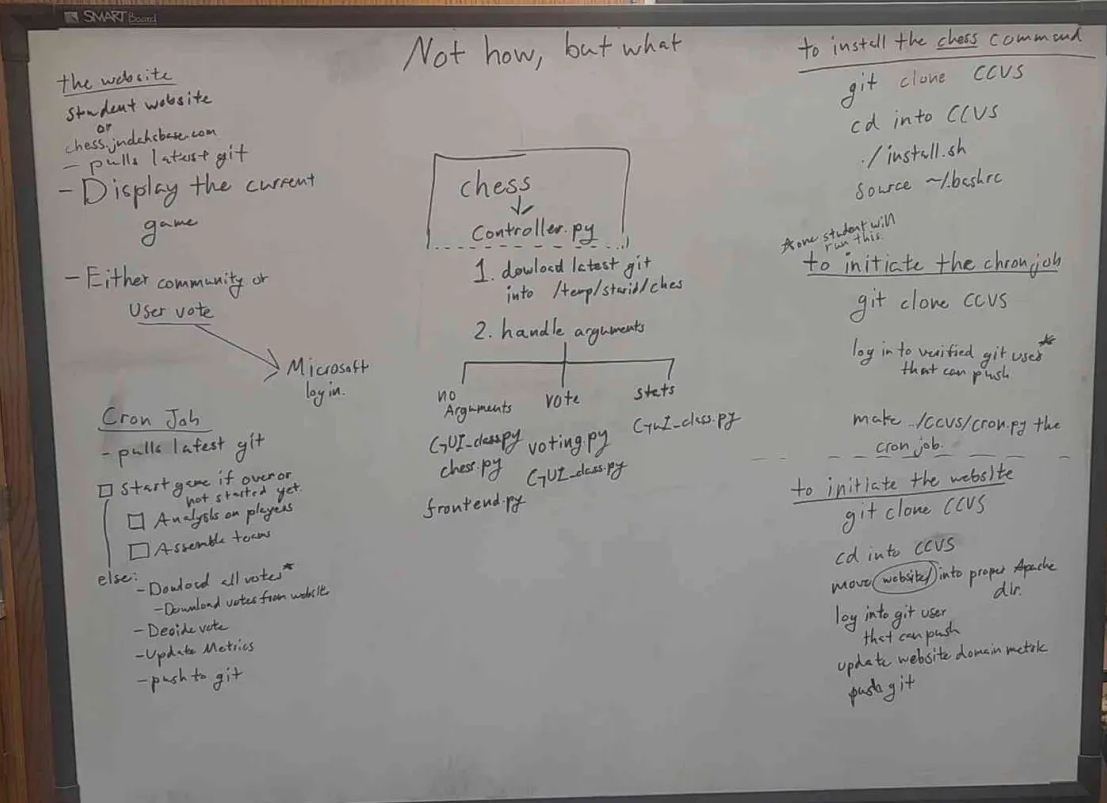 SMART Board
Not how, but what
the website
student website
or
- pulls latest git
- Display the current
game
- Either community or
User vote
Microsoft
log in.
Cron Job
- pulls latest git
Start game if over or
not started yet.
Analysis on players
Assemble teams
else:
- Download all votes*
- Download votes from website
- Decide vote
- Update Metrics
- push to git
chess
Controller.py
1. dowload latest git
into /temp/starid/ches
2. handle arguments
no
Arguments
GUI_class.py
chess.py
frontend.py
vote
voting.py
GUI_class.py
stats
GUI_class.py
to install the chess command
git clone CCVS
cd into CCVS
./install.sh
source ~/.bashrc
*one student will
run this.
to initiate the chronjob
git clone CCVS
log in to verified git user*
that can push
make ../CCVS/cron.py the
cron job.
to initiate the website
git clone CCVS
cd into CCVS
move website/ into proper Apache
dir.
log into git user
that can push
update website domain metric
push git